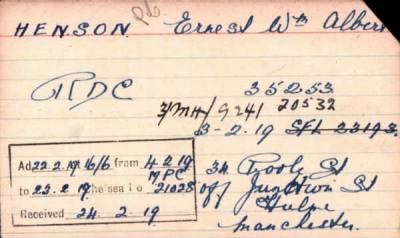 HENSON. Ernest Wm Albert
RDC 35253
3/MH/9241 20532
3-2-19 SFL 23193
Ad 22.2.19 16/6 from 4.2.19
MPC
to 23.2.19 Chelsea No 21028
Received 24.2.19
34 Poole St
off Junction St
Hulme
Manchester.